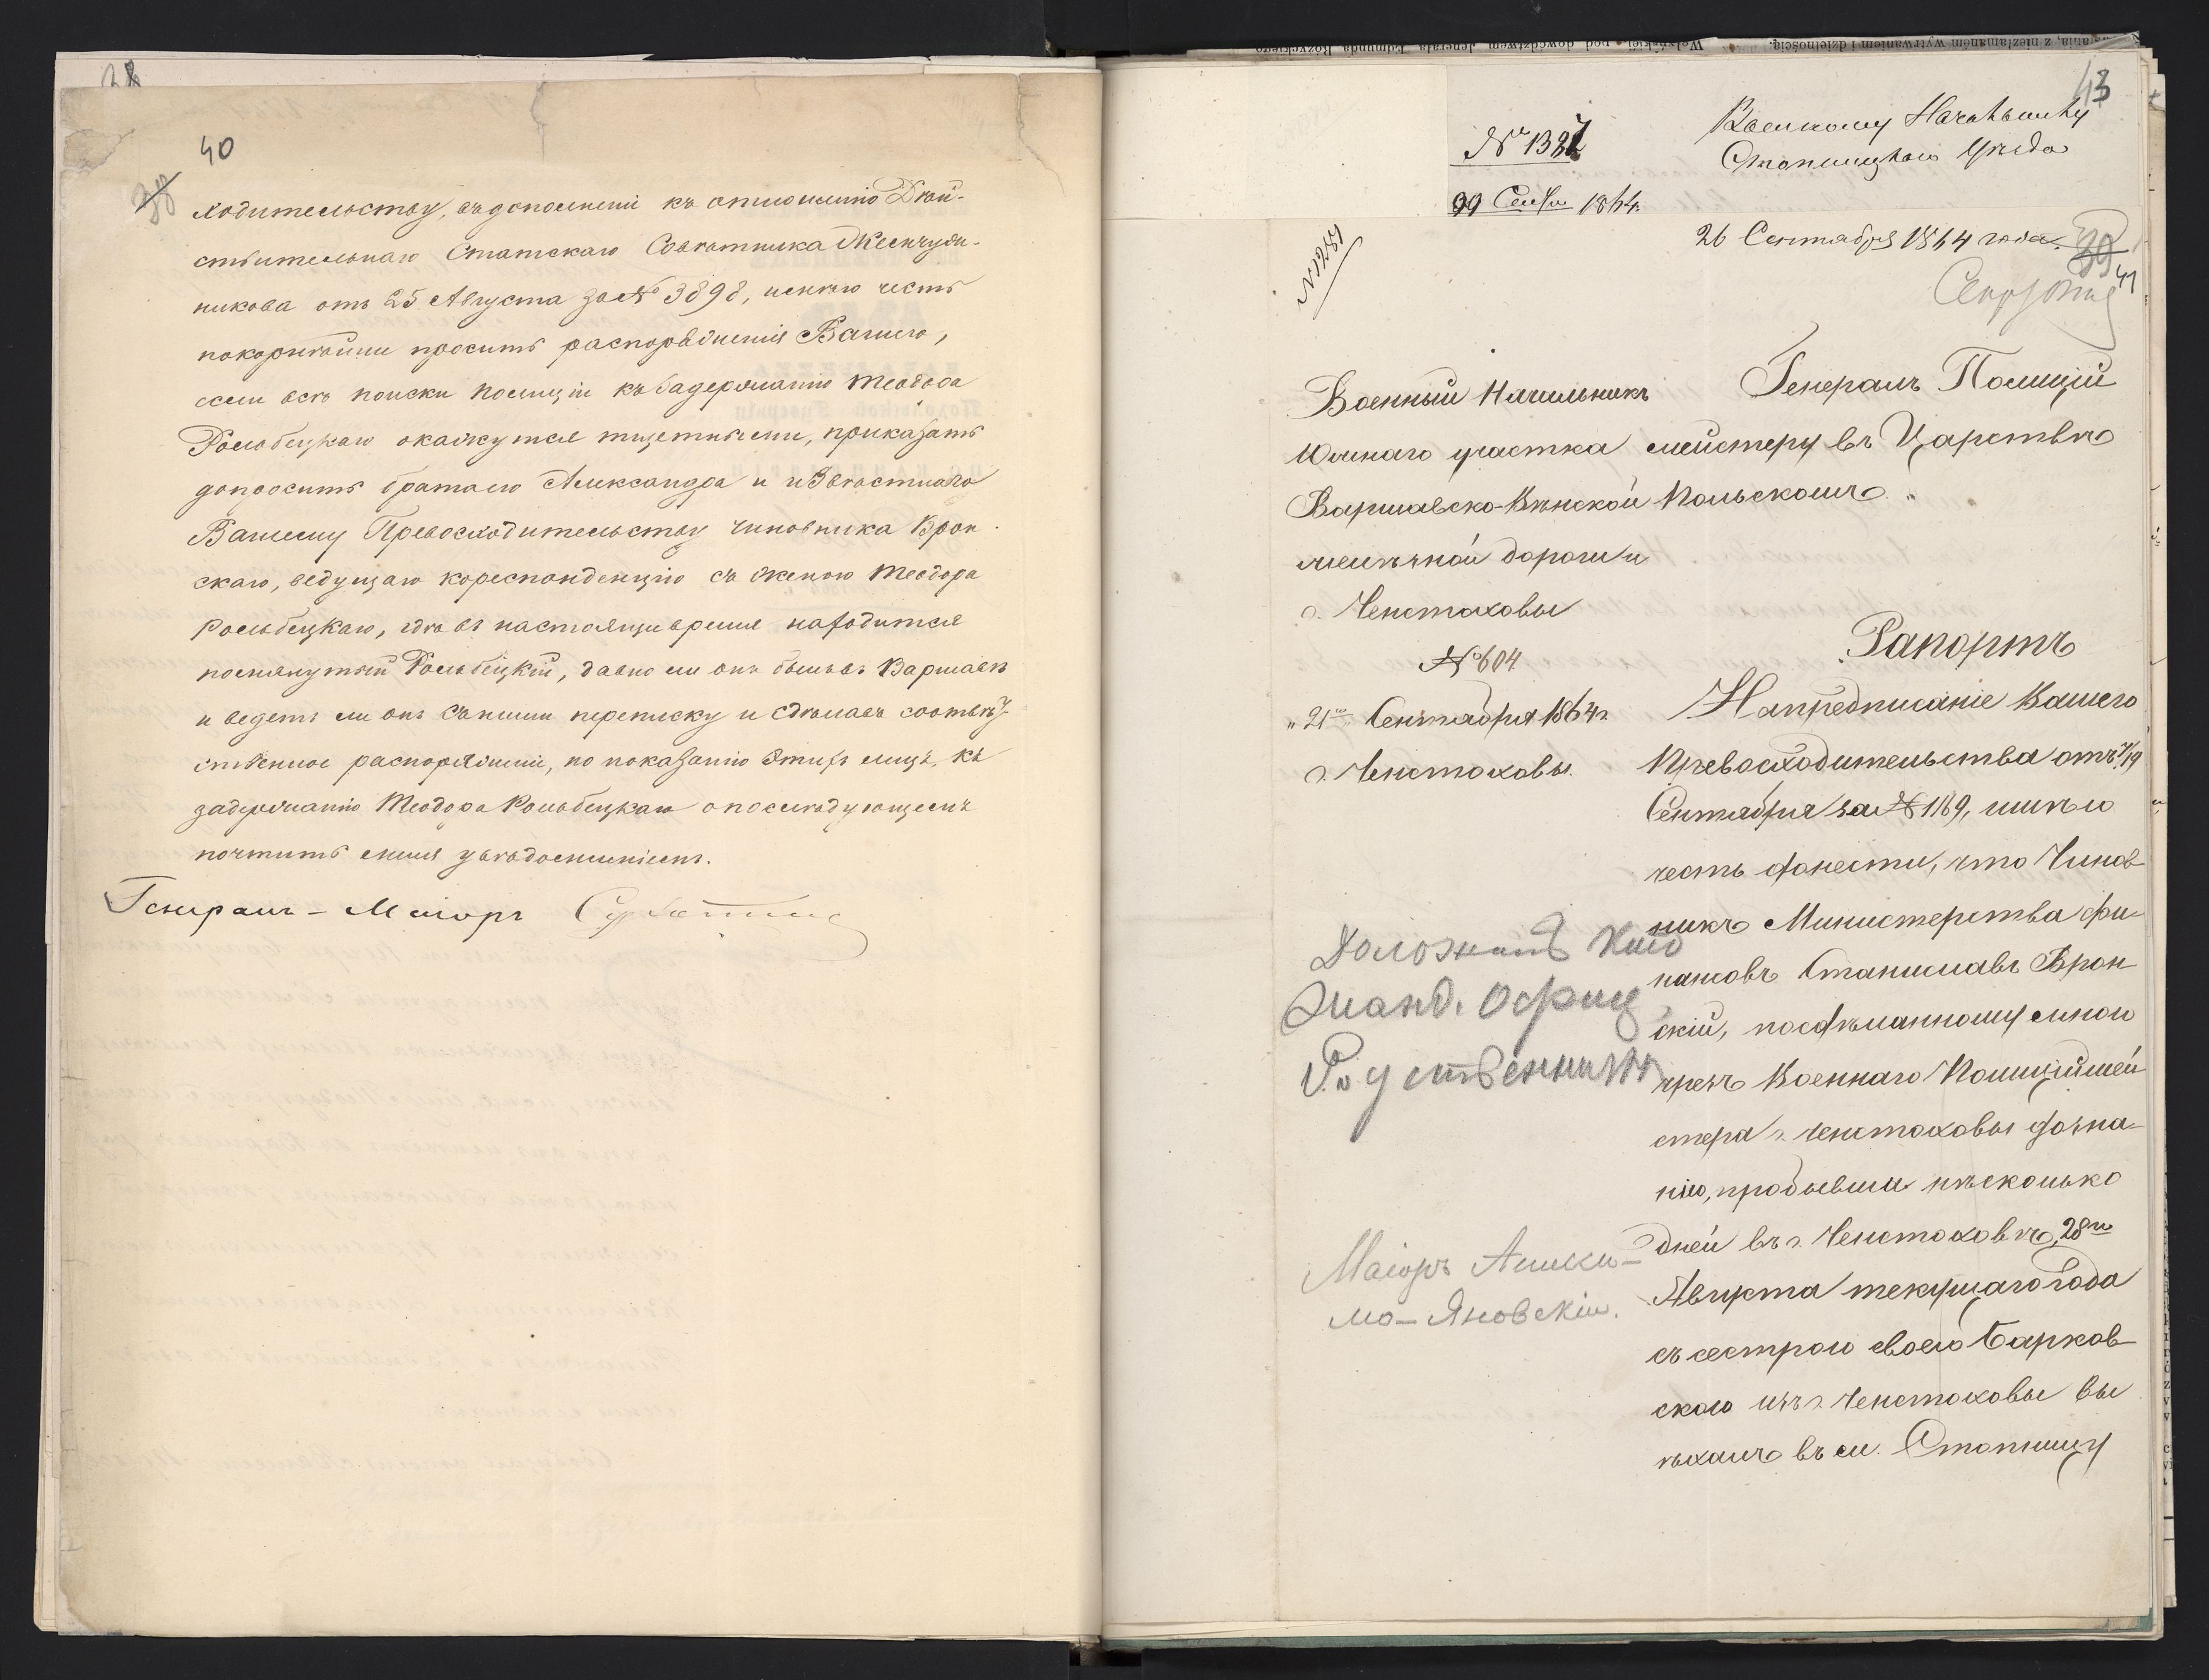 40
38
ходительству, въ дополненіе къ отношенію Дѣй-
ствительнаго Статскаго Совѣтника Жемчуж-
никова отъ 25 Августа за № 3898, имѣю честь
покорнѣйше просить распоряженія Вашего,
если всѣ поиски полиціи къ задержанію Теодора
Рольбецкаго окажутся тщетными, приказать
допросить брата его Александра и извѣстнаго
Вашему Превосходительству чиновника Врон-
скаго, ведущаго кореспонденцію съ женою Теодора
Рольбецкаго, гдѣ въ настоящее время находится
помянутый Рольбецкій, давно ли онъ былъ въ Варшавѣ
и ведетъ ли онъ съ ними переписку и сдѣлавъ соотвѣт-
ственное распоряженіе, по показанію этихъ лицъ, къ
задержанію Теодора Рольбецкаго о послѣдующемъ
почтить меня увѣдомленіемъ.
Генералъ-Маіоръ
43
Военному Начальнику
Стопницкаго Уѣзда
№ 1327
29 Сент 1864
26 Сентября 1864 года
39
41
№ 1281
Военный Начальникъ
Южнаго участка
Варшавско-Вѣнской
желѣзной дороги и
г. Ченстоховы
№ 604
„21го Сентября 1864 г.
г. Ченстоховы.
Генералъ Полицій
мейстеру въ Царствѣ
Польскомъ.
Рапортъ
На предписаніе Вашего
Превосходительства отъ 7/19
Сентября за № 1189, имѣю
честь донести, что Чинов-
никъ Министерства фи-
нансовъ Станиславъ Врон
скій, по сдѣланному мною
чрезъ Военнаго Полиціймей
стера г. Ченстоховы дозна-
нію, пробывши нѣсколько
дней въ г. Ченстоховѣ, 28го
Августа текущаго года
съ сестрою своею Барков-
скою изъ г. Ченстоховы вы
ѣхалъ въ м. Стопницу
Доложить
манд. Офиц
Маіоръ
Яновскій.